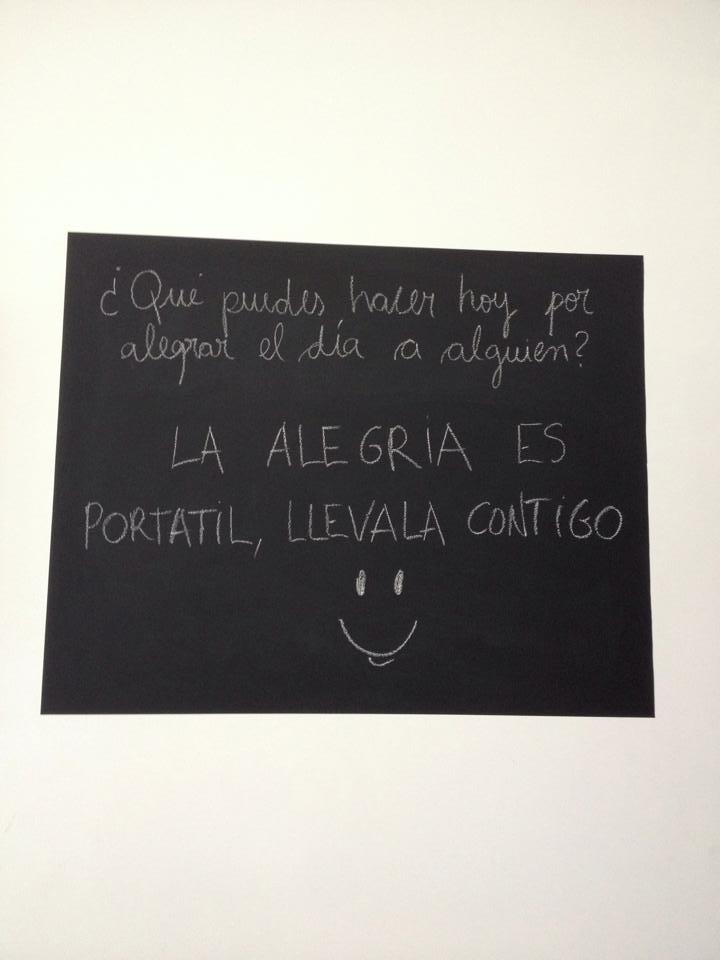 ¿Qué puedes hacer hoy por
alegrar el día a alguien?
LA ALEGRíA ES
PORTATiL, LLEVALA CONTiGO